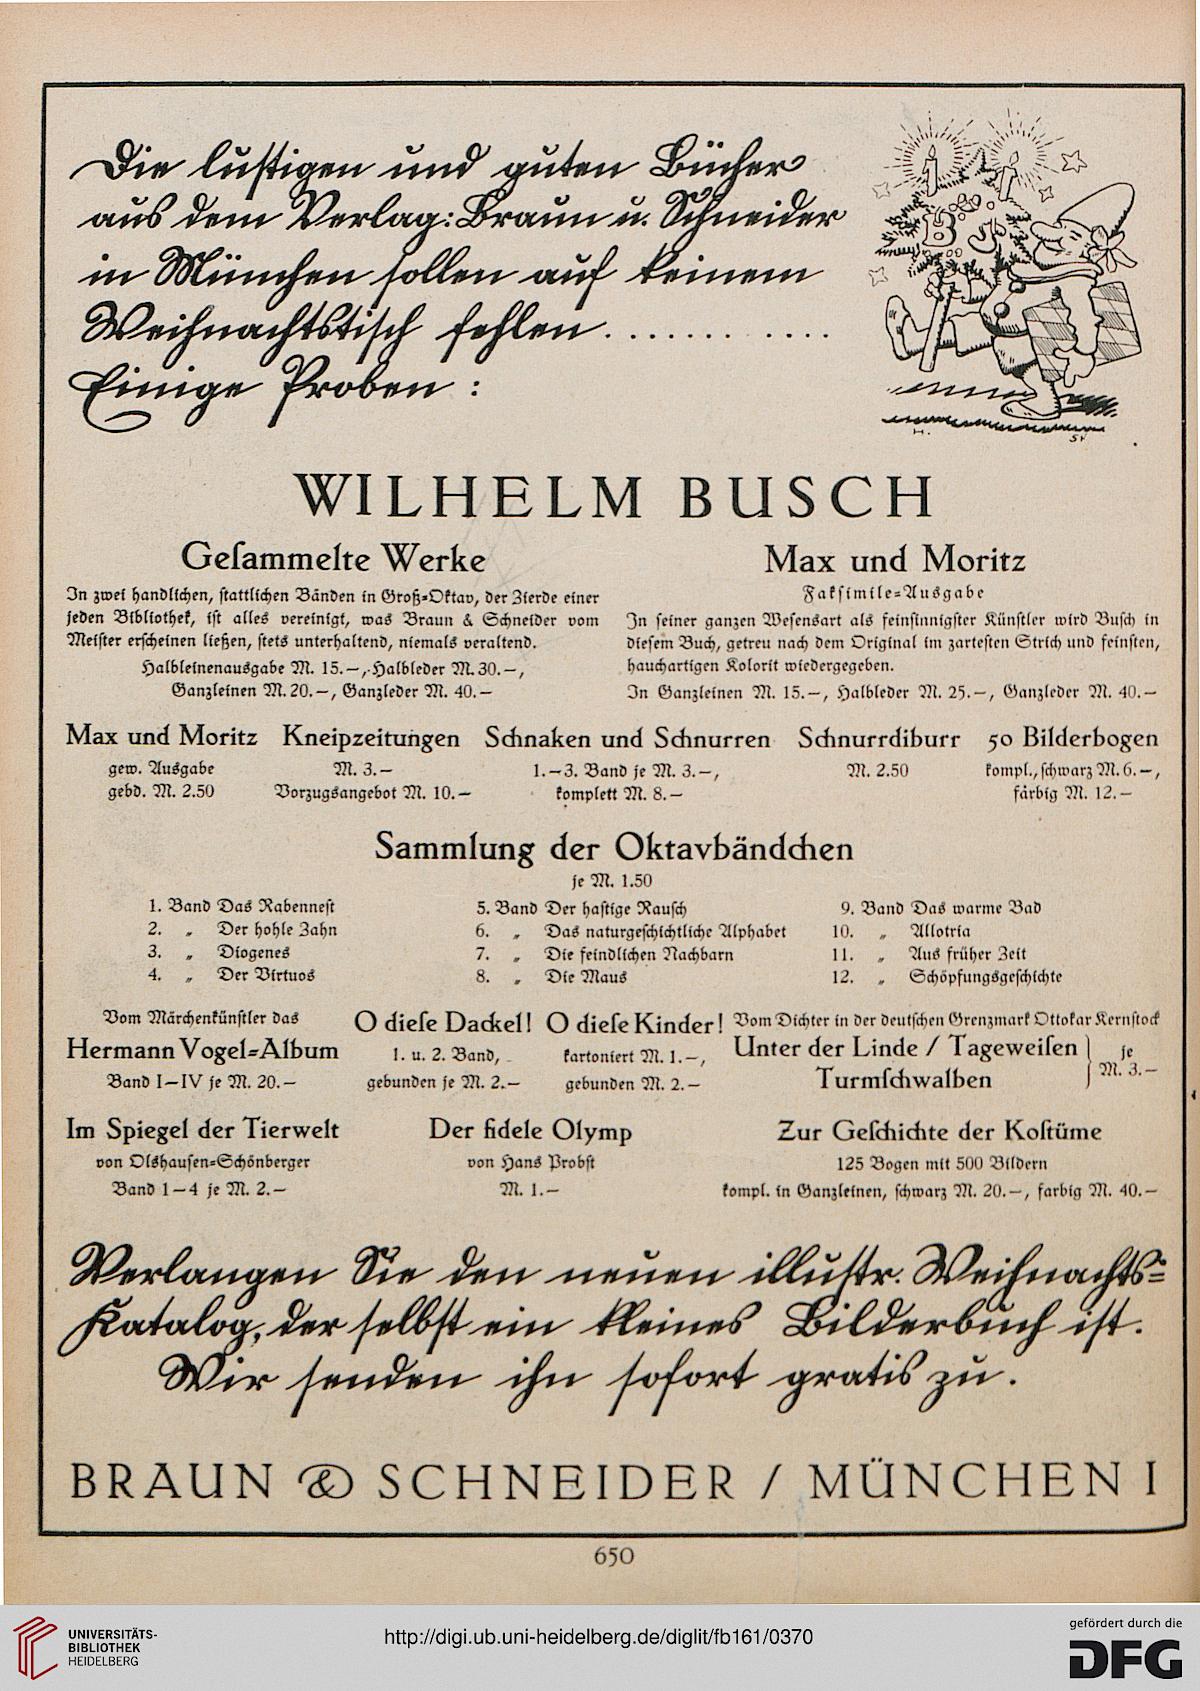 Die lustigen und guten Bücher
aus dem Verlag: Braun u. Schneider
in München sollen auf keinem
Weihnachtstisch fehlen............
Einige Proben:
B & S
H. SH
WILHELM BUSCH
Geſammelte Werke
In zwei handlichen, ſtattlichen Bänden in Groß-Oktav, der Zierde einer
jeden Bibliothek, iſt alles vereinigt, was Braun & Schneider vom
Meiſter erſcheinen ließen, ſtets unterhaltend, niemals veraltend.
Halbleinenausgabe M. 15.—, Halbleder M. 30.—,
Ganzleinen M. 20.—, Ganzleder M. 40.—
Max und Moritz
Fakſimile-Ausgabe
In ſeiner ganzen Weſensart als feinſinnigſter Künſtler wird Buſch in
dieſem Buch, getreu nach dem Original im zarteſten Strich und feinſten,
hauchartigen Kolorit wiedergegeben.
In Ganzleinen M. 15.—, Halbleder M. 25.—, Ganzleder M. 40.—
Max und Moritz
gew. Ausgabe
gebd. M. 2.50
Kneipzeitungen
M. 3.—
Vorzugsangebot M. 10.—
Schnaken und Schnurren
1.—3. Band je M. 3.—,
komplett M. 8.—
Schnurrdiburr
M. 2.50
50 Bilderbogen
kompl., ſchwarz M. 6.—,
färbig M. 12.—
Sammlung der Oktavbändchen
je M. 1.50
1. Band Das Rabenneſt
2. „ Der hohle Zahn
3. „ Diogenes
4. „ Der Virtuos
5. Band Der haſtige Rauſch
6. „ Das naturgeſchichtliche Alphabet
7. „ Die feindlichen Nachbarn
8. „ Die Maus
9. Band Das warme Bad
10. „ Allotria
11. „ Aus früher Zeit
12. „ Schöpfungsgeſchichte
Vom Märchenkünſtler das
Hermann Vogel-Album
Band I—IV je M. 20.—
O dieſe Dackel!
1. u. 2. Band,
gebunden je M. 2.—
O dieſe Kinder!
kartoniert M. 1.—,
gebunden M. 2.—
Vom Dichter in der deutſchen Grenzmark Ottokar Kernſtock
Unter der Linde / Tageweiſen
Turmſchwalben
je
M. 3.—
Im Spiegel der Tierwelt
von Olshauſen-Schönberger
Band 1—4 je M. 2.—
Der fidele Olymp
von Hans Probſt
M. 1.—
Zur Geſchichte der Koſtüme
125 Bogen mit 500 Bildern
kompl. in Ganzleinen, ſchwarz M. 20.—, farbig M. 40.—
Verlangen Sie den neuen illustr. Weihnachts-
Katalog, der selbst ein kleines Bilderbuch ist.
Wir senden ihn sofort gratis zu.
BRAUN & SCHNEIDER / MÜNCHEN I
650
UNIVERSITÄTS-
BIBLIOTHEK
HEIDELBERG
http://digi.ub.uni-heidelberg.de/diglit/fb161/0370
gefördert durch die
DFG